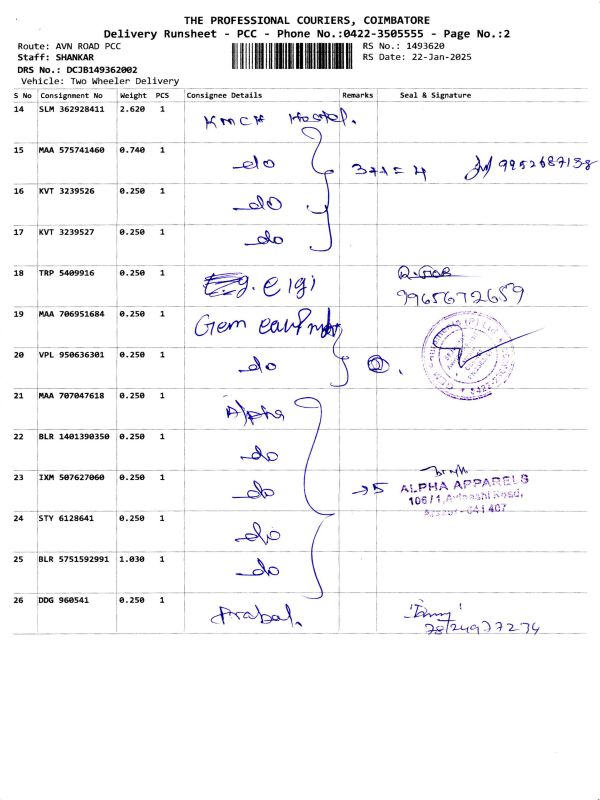 THE PROFESSIONAL COURIERS, COIMBATORE
Delivery Runsheet - PCC - Phone No.:0422-3505555 - Page No.:2
Route: AVN ROAD PCC RS No.: 1493620
Staff: SHANKAR RS Date: 22-Jan-2025
DRS No.: DCJB149362002
Vehicle: Two Wheeler Delivery
S No Consignment No Weight PCS Consignee Details Remarks Seal & Signature
14 SLM 362928411 2.620 1 KMCH Hostel.
15 MAA 575741460 0.740 1 -do 3+1=4
16 KVT 3239526 0.250 1 -do
17 KVT 3239527 0.250 1 -do
18 TRP 5409916 0.250 1 elgi
9965672659
19 MAA 706951684 0.250 1 Gem
20 VPL 950636301 0.250 1 -do 2.
21 MAA 707047618 0.250 1 Alpha
22 BLR 1401390350 0.250 1 -do
23 IXM 507627060 0.250 1 -do →5 ALPHA APPARELS
106/1, Avinashi Road,
641 407
24 STY 6128641 0.250 1 -do
25 BLR 5751592991 1.030 1 -do
26 DDG 960541 0.250 1